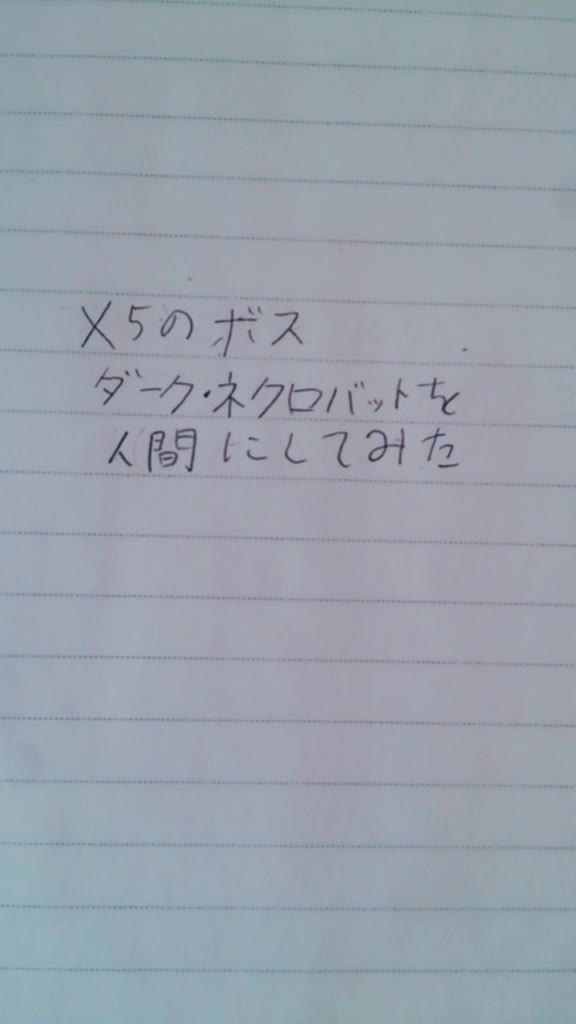 X5のボス
ダーク・ネクロバットを
人間にしてみた